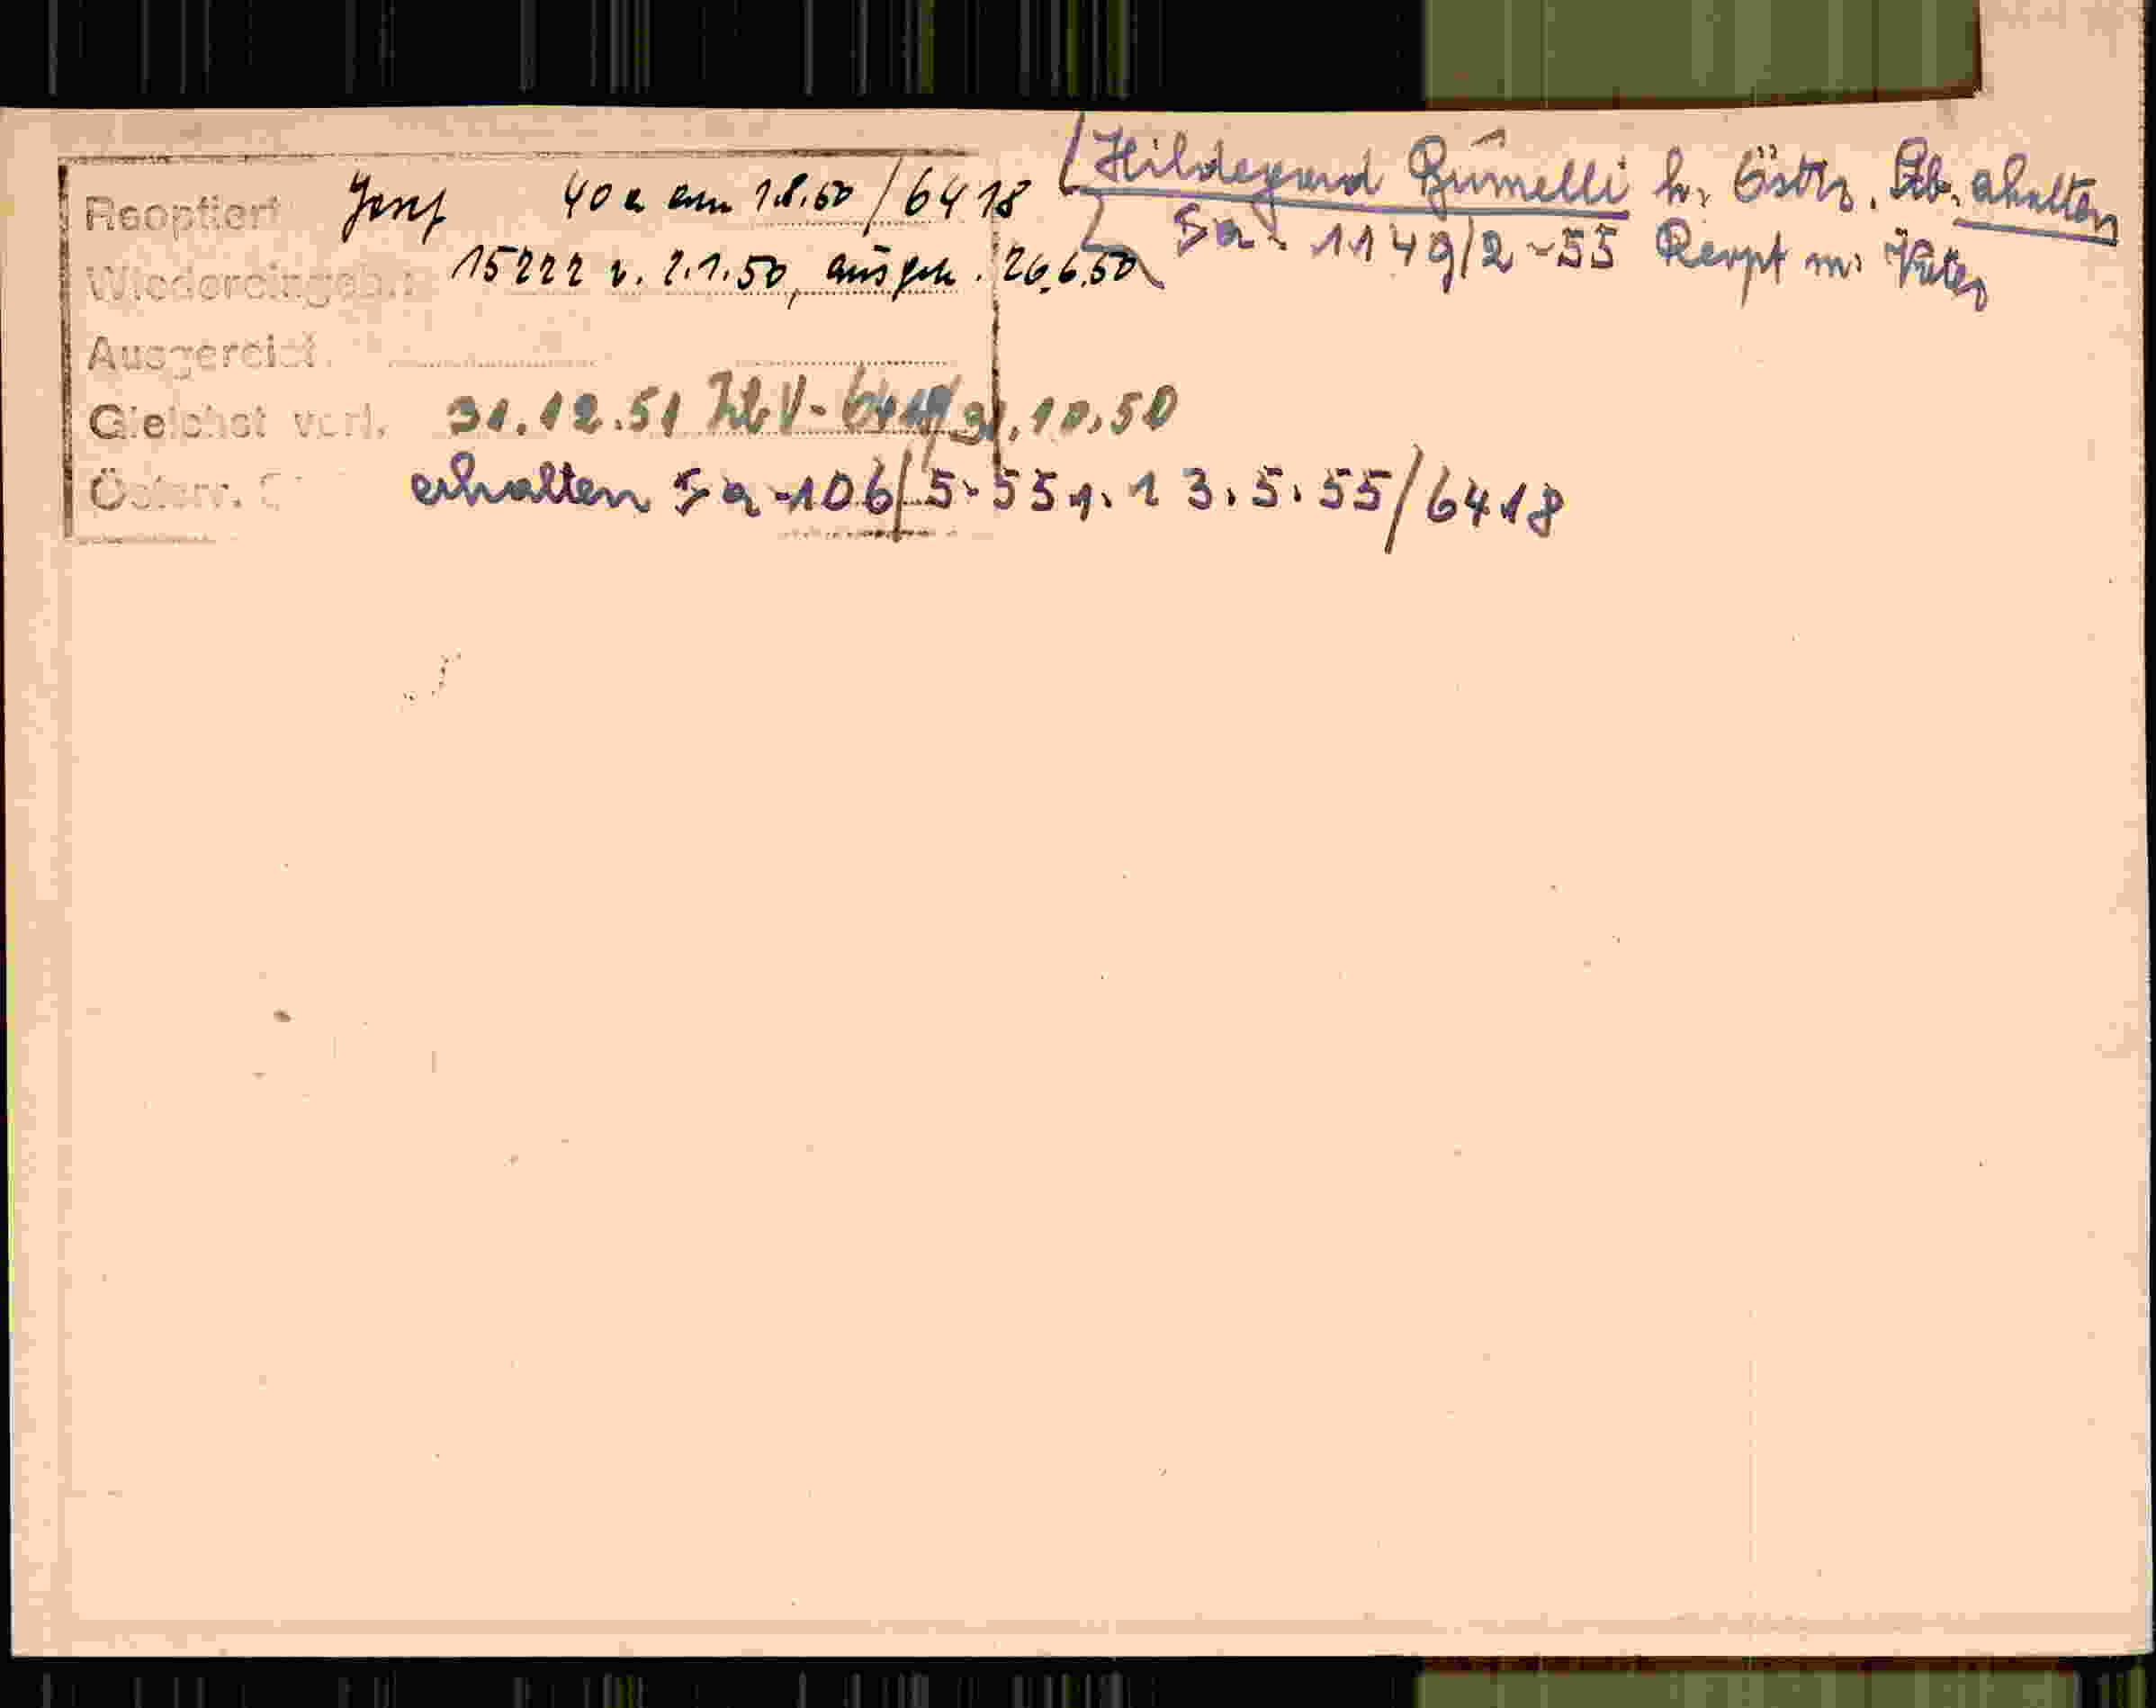 Reoptiert Josef 40 a am 1.8.50/6418
Wiedereingeb.: 15222 v. 2.1.50, ausgeh. 26.6.50
Ausgereist.
Gleichst verl. 31.12.51 V-6418/31.10.50
Österr. erhalten 5a-106/5-55 v. 13.5.55/6418
Hildegard h. Östr. Stb. erhalten
5a-1149/2-55 Reopt m. Vater